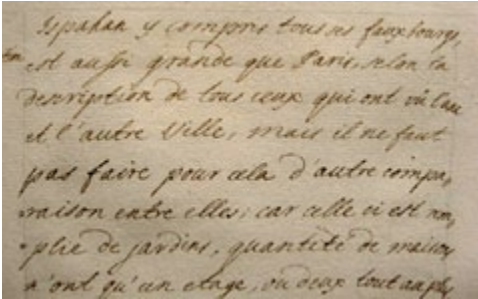 Ispahan y compris tous ses fauxbourgs,
est aussi grande que Paris, selon la
description de tous ceux qui ont vû l'une
et l'autre Ville, mais il ne faut
pas faire pour cela d'autre compa,
raison entre elles; car celle ci est rem,
plie de jardins, quantité de maisons
n'ont qu'un etage, ou deux tout au plus